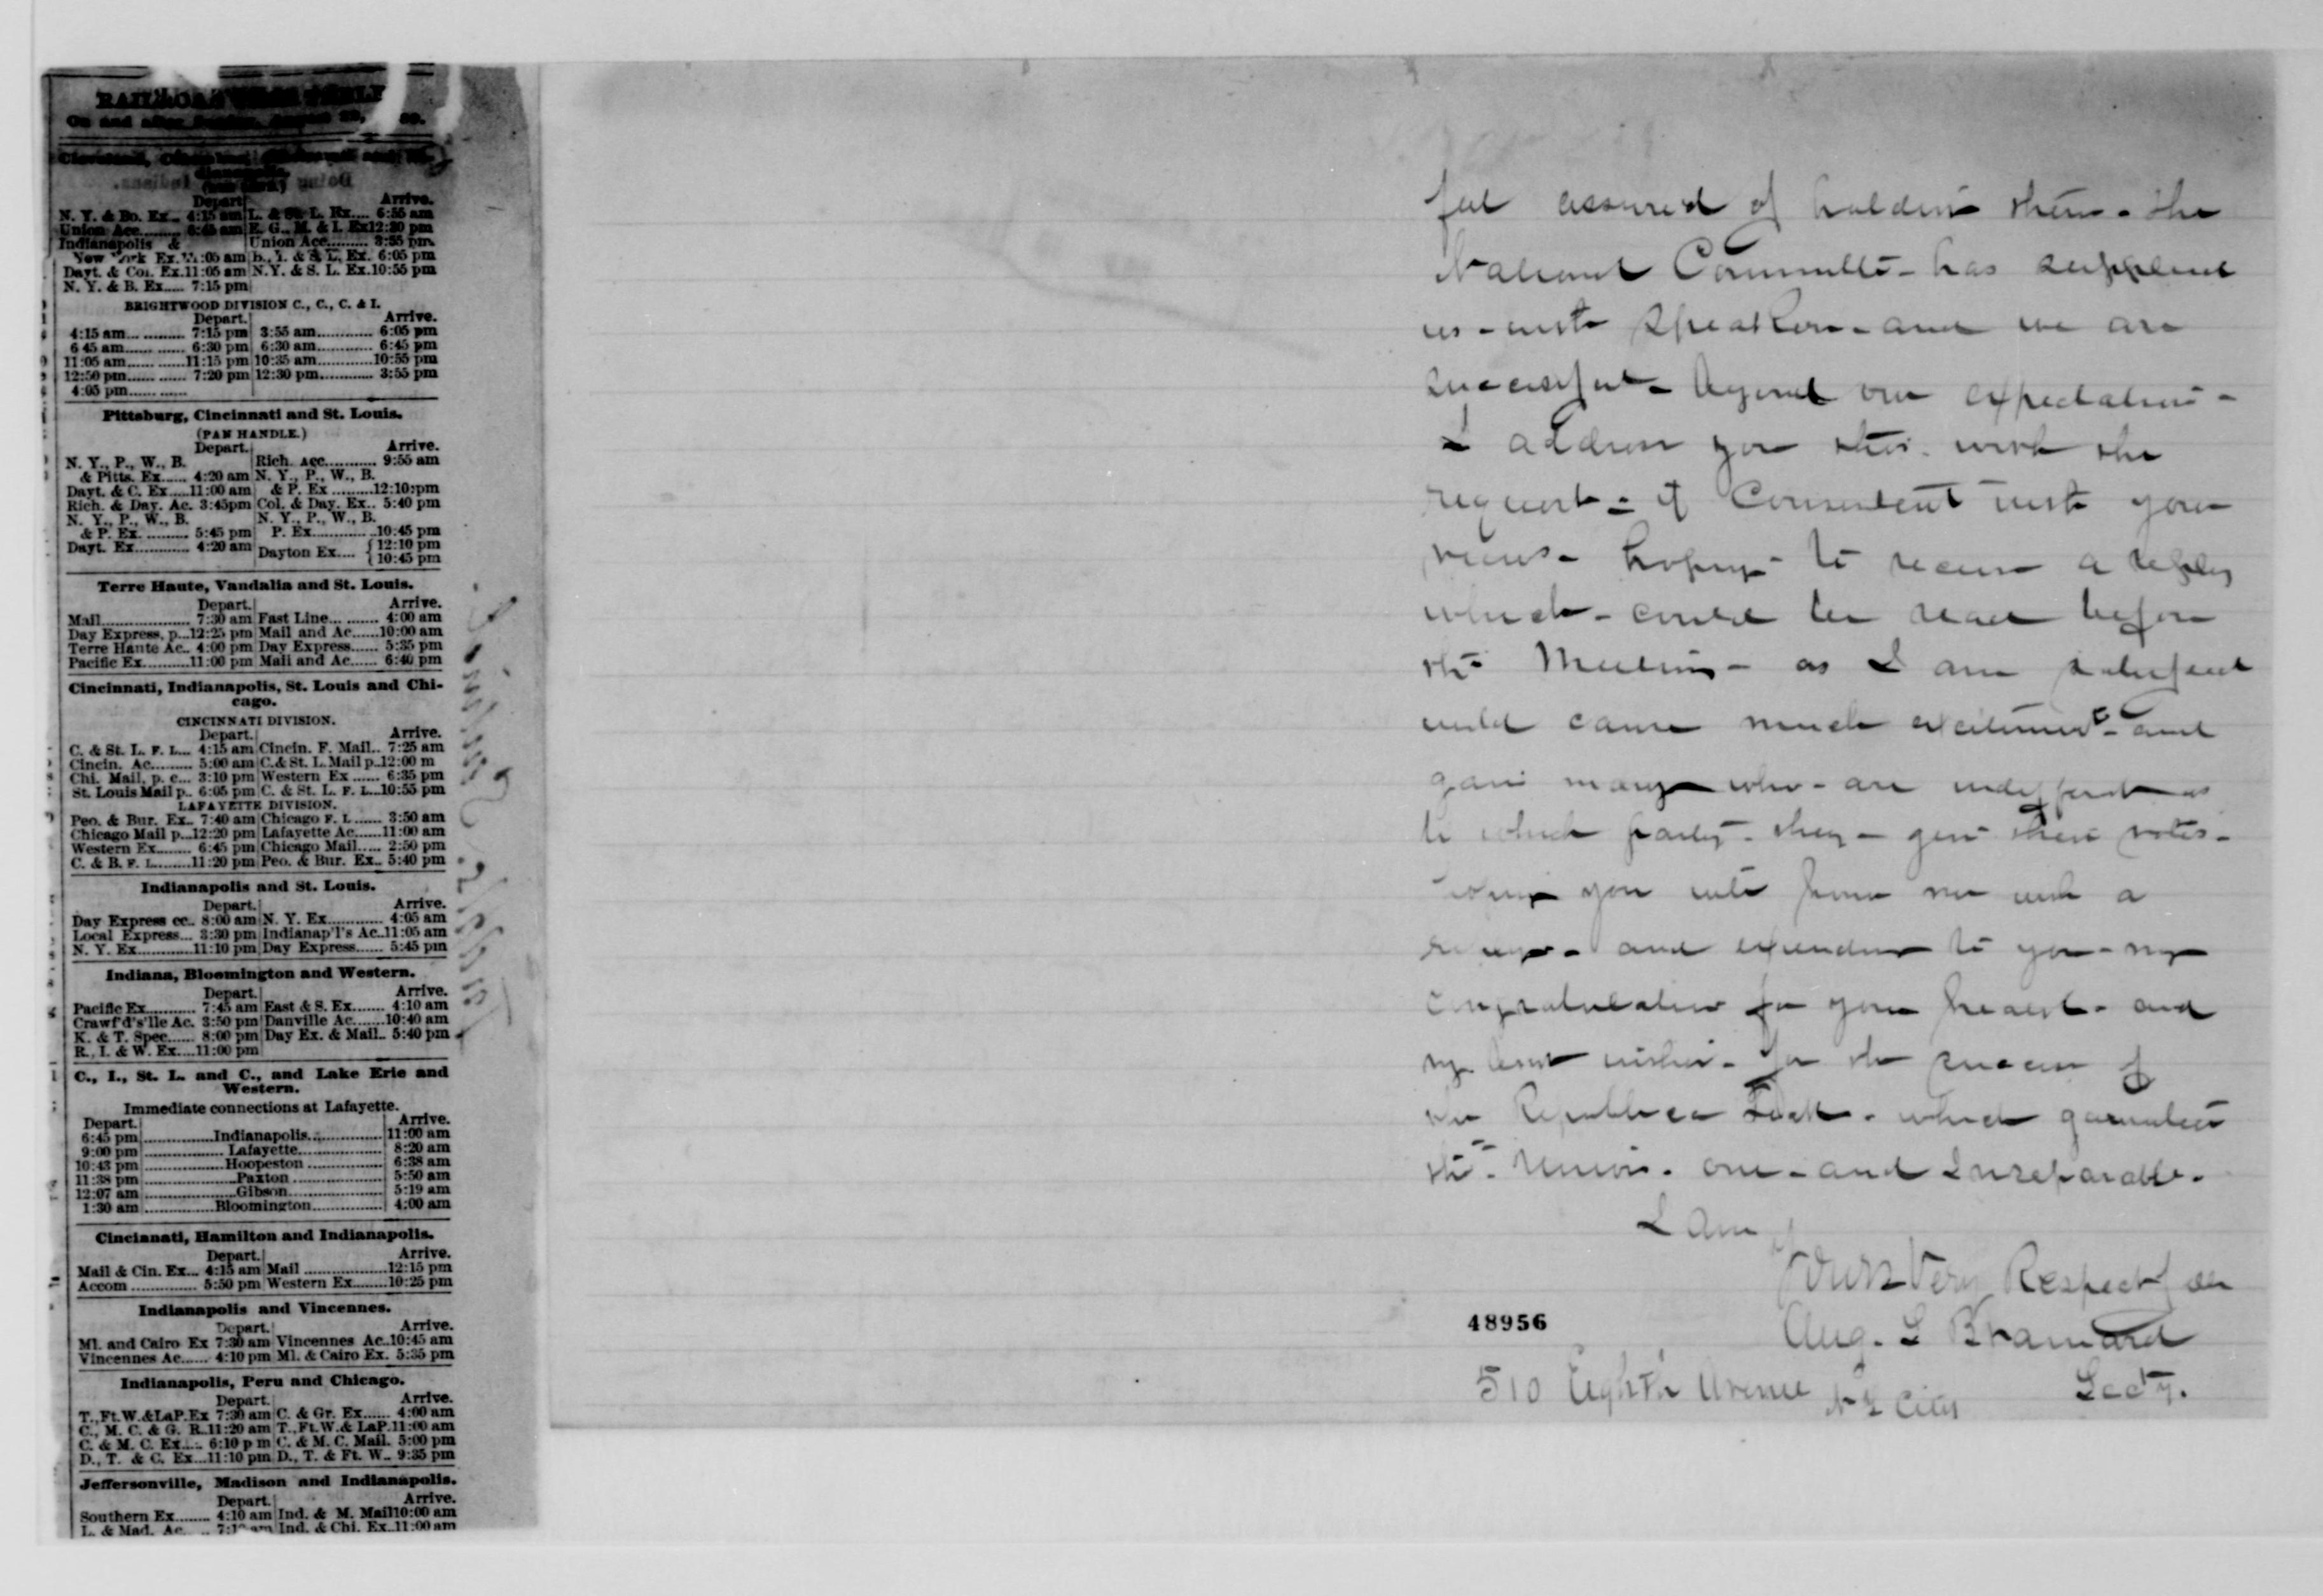 On and after Sunday, August 29,
Depart. Arrive.
N. Y. & Bo. Ex.. 4:15 am L. & St. L. Ex.... 6:55 am
Union Acc......... 6:45 am E. G., M. & I. Ex 12:30 pm
Indianapolis & Union Acc......... 3:55 pm.
New York Ex. 11:05 am B., I. & S. L. Ex. 6:05 pm
Dayt. & Col. Ex. 11:05 am N.Y. & S. L. Ex. 10:55 pm
N. Y. & B. Ex..... 7:15 pm
BRIGHTWOOD DIVISION C., C., C. & I.
Depart. Arrive.
4:15 am........... 7:15 pm 3:55 am............ 6:05 pm
6 45 am........... 6:30 pm 6:30 am............ 6:45 pm
11:05 am...........11:15 pm 10:35 am...........10:55 pm
12:50 pm........... 7:20 pm 12:30 pm........... 3:55 pm
4:05 pm...........
Pittsburg, Cincinnati and St. Louis.
(PAN HANDLE.)
Depart. Arrive.
N. Y., P., W., B. Rich. acc........... 9:55 am
& Pitts. Ex...... 4:20 am N. Y., P., W., B.
Dayt. & C. Ex.....11:00 am & P. Ex .........12:10 pm
Rich. & Day. Ac. 3:45pm Col. & Day. Ex.. 5:40 pm
N. Y., P., W., B. N. Y., P., W., B.
& P. Ex. ......... 5:45 pm P. Ex.............10:45 pm
Dayt. Ex........... 4:20 am Dayton Ex.... {12:10 pm
{10:45 pm
Terre Haute, Vandalia and St. Louis.
Depart. Arrive.
Mail.................. 7:30 am Fast Line... ....... 4:00 am
Day Express, p...12:25 pm Mail and Ac......10:00 am
Terre Haute Ac.. 4:00 pm Day Express...... 5:35 pm
Pacific Ex..........11:00 pm Mail and Ac...... 6:40 pm
Cincinnati, Indianapolis, St. Louis and Chi-
cago.
CINCINNATI DIVISION.
Depart. Arrive.
C. & St. L. F. L... 4:15 am Cincin. F. Mail.. 7:25 am
Cincin. Ac......... 5:00 am C.& St. L. Mail p..12:00 m
Chi. Mail, p. c... 3:10 pm Western Ex ...... 6:35 pm
St. Louis Mail p.. 6:05 pm C. & St. L. F. L...10:55 pm
LAFAYETTE DIVISION.
Peo. & Bur. Ex.. 7:40 am Chicago F. L ...... 3:50 am
Chicago Mail p...12:20 pm Lafayette Ac......11:00 am
Western Ex........ 6:45 pm Chicago Mail..... 2:50 pm
C. & B. F. L........11:20 pm Peo. & Bur. Ex.. 5:40 pm
Indianapolis and St. Louis.
Depart. Arrive.
Day Express cc.. 8:00 am N. Y. Ex............ 4:05 am
Local Express... 3:30 pm Indianap'l's Ac..11:05 am
N. Y. Ex............11:10 pm Day Express...... 5:45 pm
Indiana, Bloomington and Western.
Depart. Arrive.
Pacific Ex.......... 7:45 am East & S. Ex....... 4:10 am
Crawf'd's'lle Ac. 3:50 pm Danville Ac.......10:40 am
K. & T. Spec...... 8:00 pm Day Ex. & Mail.. 5:40 pm
R., I. & W. Ex....11:00 pm
C., I., St. L. and C., and Lake Erie and
Western.
Immediate connections at Lafayette.
Depart. Arrive.
6:45 pm ..............Indianapolis............... 11:00 am
9:00 pm ................ Lafayette.................. 8:20 am
10:43 pm ................Hoopeston ................ 6:38 am
11:38 pm ..................Paxton .................... 5:50 am
12:07 am ..................Gibson..................... 5:19 am
1:30 am ...............Bloomington............... 4:00 am
Cincinnati, Hamilton and Indianapolis.
Depart. Arrive.
Mail & Cin. Ex... 4:15 am Mail .................12:15 pm
Accom .............. 5:50 pm Western Ex........10:25 pm
Indianapolis and Vincennes.
Depart. Arrive.
Ml. and Cairo Ex 7:30 am Vincennes Ac..10:45 am
Vincennes Ac...... 4:10 pm Ml. & Cairo Ex. 5:35 pm
Indianapolis, Peru and Chicago.
Depart. Arrive.
T.,Ft.W.&LaP.Ex 7:30 am C. & Gr. Ex...... 4:00 am
C., M. C. & G. R..11:20 am T.,Ft.W.& LaP.11:00 am
C. & M. C. Ex..... 6:10 p m C. & M. C. Mail. 5:00 pm
D., T. & C. Ex...11:10 pm D., T. & Ft. W.. 9:35 pm
Jeffersonville, Madison and Indianapolis.
Depart. Arrive.
Southern Ex........ 4:10 am Ind. & M. Mail 10:00 am
L. & Mad. Ac. .. Ind. & Chi. Ex..11:00 am
feel assured of holding them - the
National Committe - has supplied
us - with Speakers - and we are
successful - beyond our expectation -
I address you this with the
request - if Consistent with your
views - hoping - to receive a reply
which - could be read before
the Meeting - as I am satisfied
would cause much excitement - and
gain many who - are indifferent as
to which party - they - give their votes -
hoping you will favor me with a
and extending to you - my
congratulation for your health - and
my best wishes - for the success of
the Republican Ticket - which guarantees
the - Union - one - and Inseparable -
I am
Yours Very Respectfully
Aug. L Brainard
Secty.
48956
510 Eighth Avenue N Y City